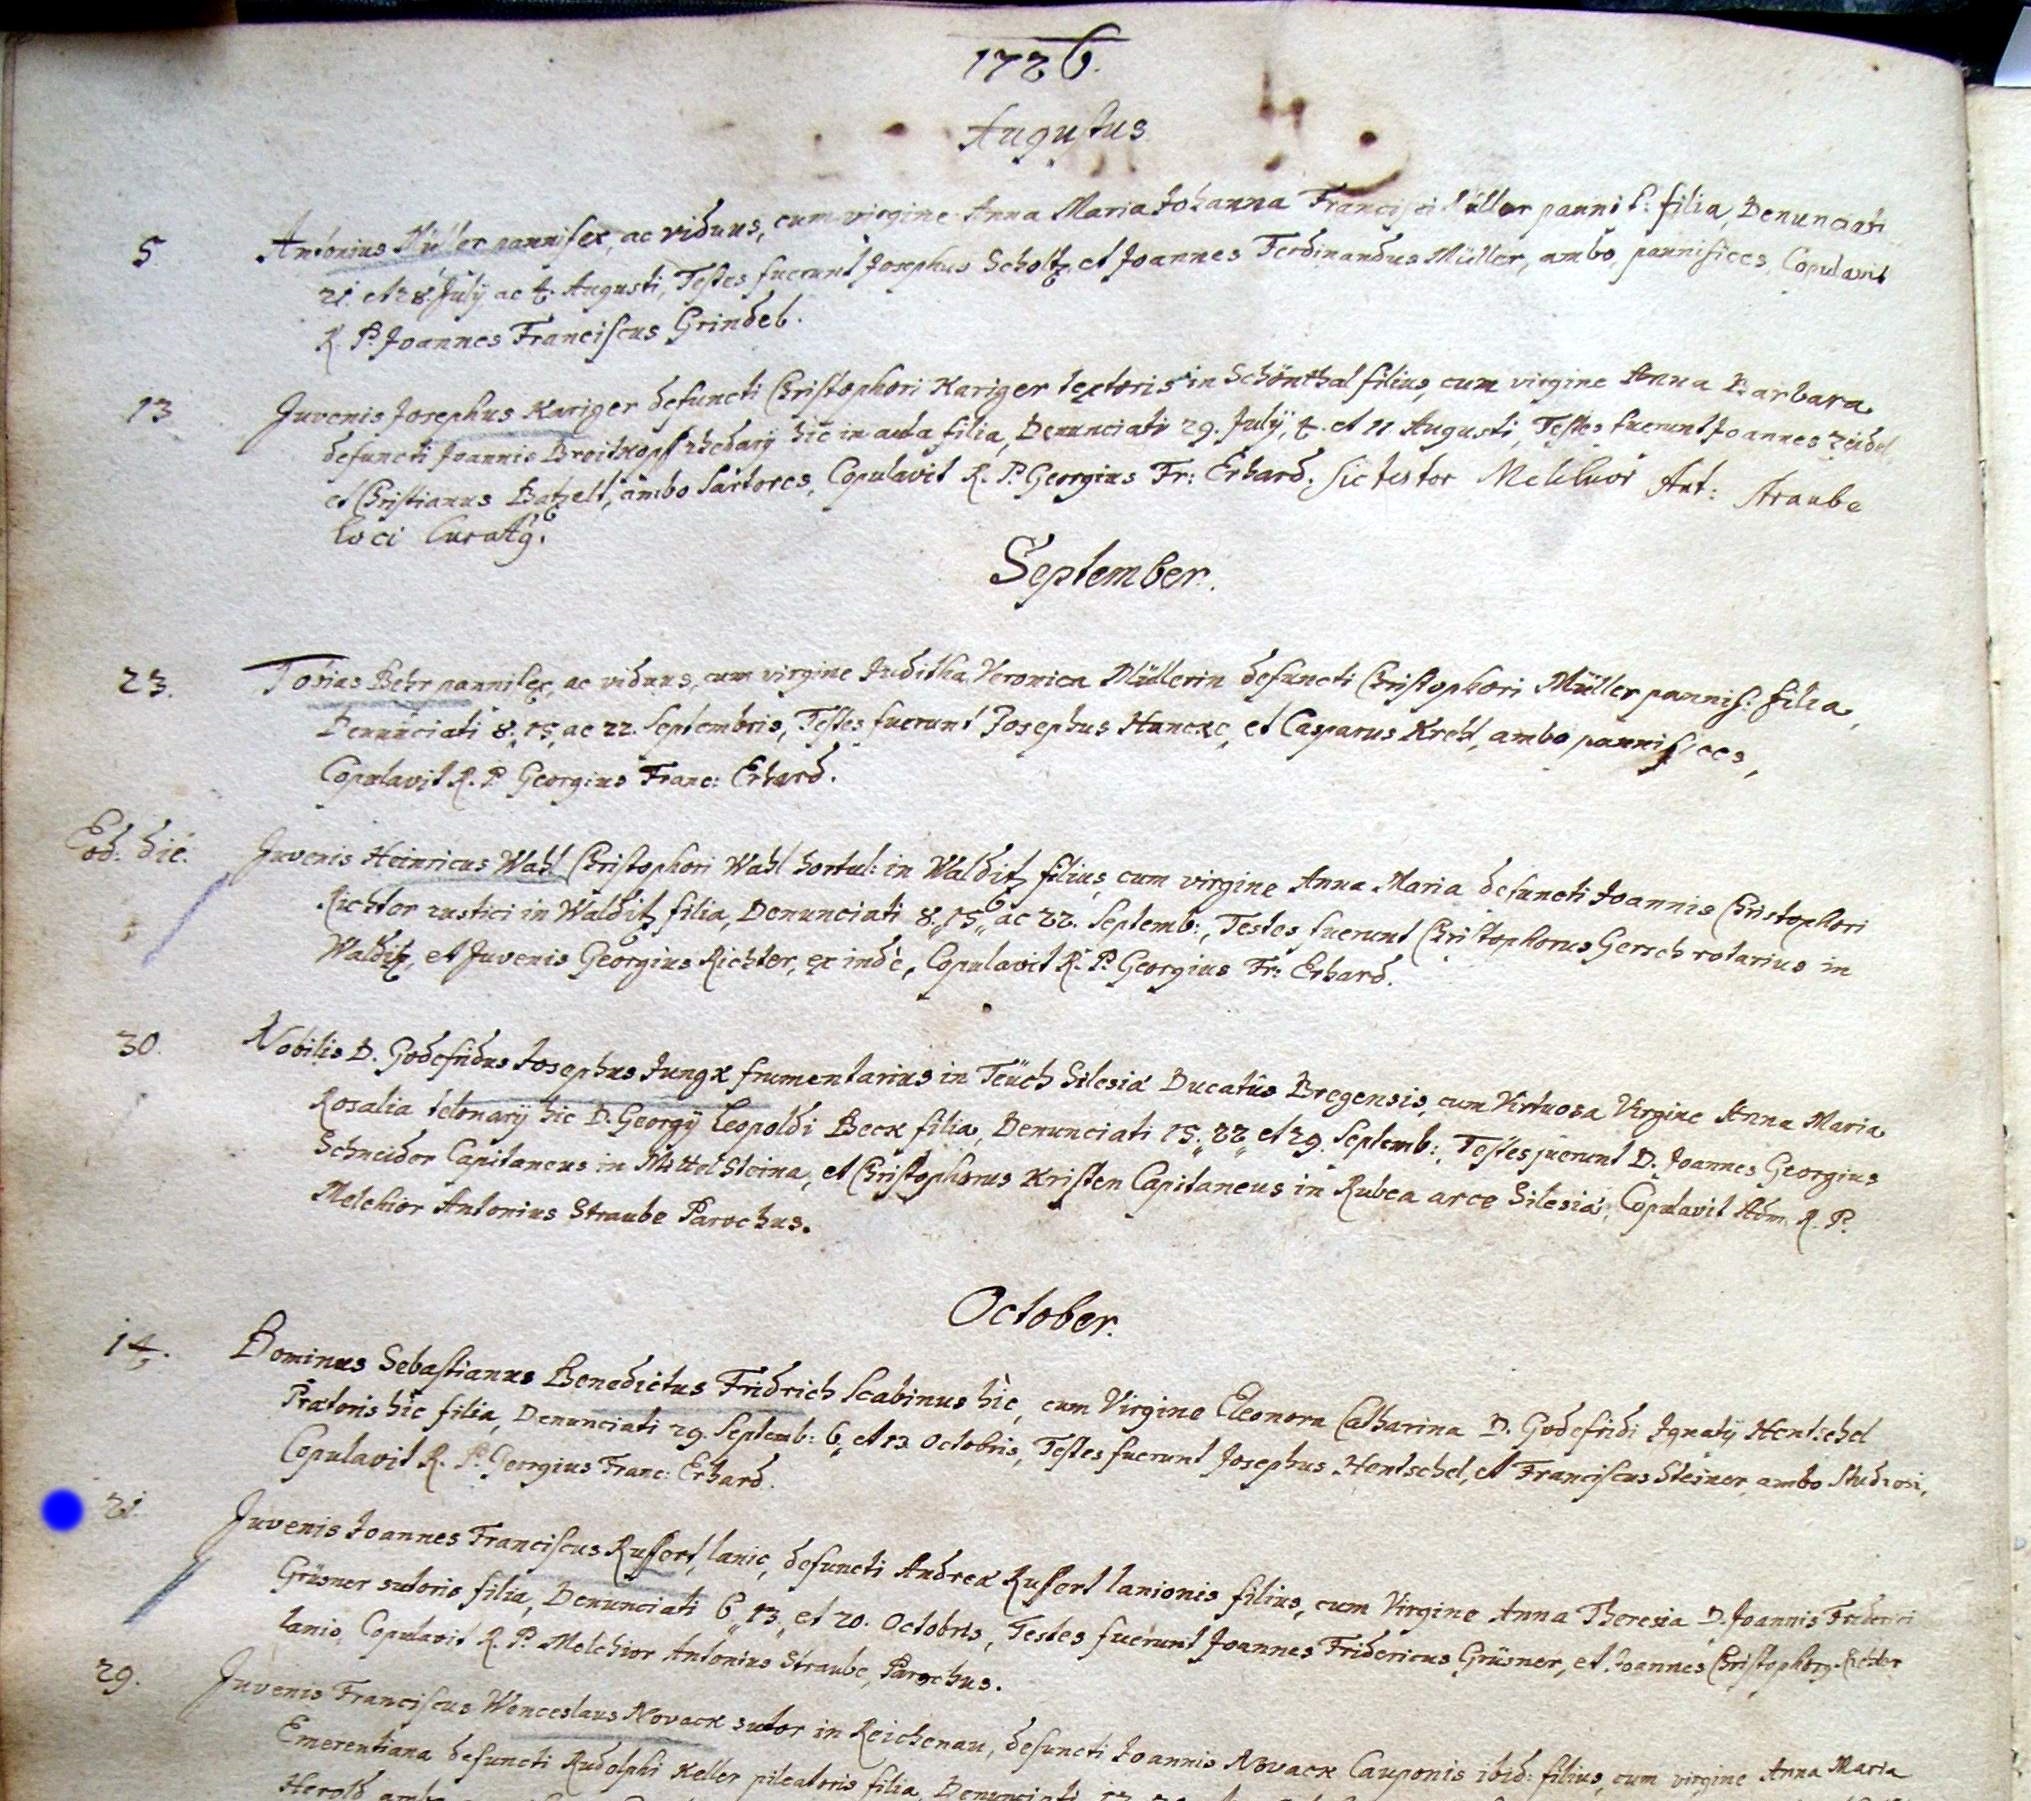 1726.
Augustus
5. Antonius Müller pannifex, ac viduus, cum virgine Anna Maria Johanna Francisci Müller pannif: filia, Denunciati
21. et 28. July ac 4. Augusti, Testes fuerunt Josephus Scholtz, et Joannes Ferdinandus Müller, ambo pannifices, Copulavit
R. P. Joannes Franciscus Grindel.
13 Juvenis Josephus Kariger defuncti Christophori Kariger textoris in Schönthal filius, cum virgine Anna Barbara
defuncti Joannis Breitkopff rhedarÿ hic in filia, Denunciati 29. Julÿ, 4. et 11. Augusti, Testes fuerunt Joannes Zeidel
et Christianus Batzelt, ambo Sartores, Copulavit R. P. Georgius Fr: Erhard. Sic testor Melchior Ant: Straube
loci Curat9.
September.
23. Tobias Behr pannifex, ac viduus, cum virgine Juditha Veronica Müllerin defuncti Christophori Müller pannif: filia,
Denunciati 8. 15, ac 22. Septembris, Testes fuerunt Josephus Hancke, et Casparus Krehl, ambo pannifices,
Copulavit R. P. Georgius Franc: Erhard.
Eod: die. Juvenis Heinricus Wahl Christophori Wahl hortul: in Walditz filius, cum virgine Anna Maria defuncti Joannis Christophori
Richter rustici in Walditz filia, Denunciati 8. 15. ac 22. Septemb:, Testes fuerunt Christophorus Gersch rotarius in
Walditz, et Juvenis Georgius Richter, ex indè, Copulavit R. P. Georgius Fr: Erhard.
30. Nobilis D. Godefridus Josephus Jungk frumentarius in Teüch Silesiæ Ducatûs Bregensis, cum Virtuosa Virgine Anna Maria
Rosalia telonarÿ hic D. Georgÿ Leopoldi Beck filia, Denunciati 15. 22. et 29. Septemb:, Testes fuerunt D. Joannes Georgius
Schneider Capitaneus in Mittel Steina, et Christophorus Kristen Capitaneus in Rubea arce Silesiæ, Copulavit Adm. R. P.
Melchior Antonius Straube Parochus.
October.
14. Dominus Sebastianus Benedictus Fridrich Scabinus hic, cum Virgine Eleonora Catharina D. Godefridi Ignatÿ Hentschel
Prætoris hic filia, Denunciati 29. Septemb: 6. et 13 Octobris, Testes fuerunt Josephus Hentschel, et Franciscus Steiner, ambo Studiosi,
Copulavit R. P. Georgius Franc: Erhard.
21. Juvenis Joannes Franciscus Ruffert, lanio, defuncti Andreæ Ruffert lanionis filius, cum Virgine Anna Theresia D. Joannis Friderici
Grüsner sutoris filia, Denunciati 6. 13. et 20. Octobris, Testes fuerunt Joannes Fridericus Grüsner, et Joannes Christophor9 Richter
lanio, Copulavit R. P. Melchior Antonius Straube, Parochus.
29. Juvenis Franciscus Wenceslaus Novack sutor in Reichenau, defuncti Joannis Novack Cauponis ibid: filius, cum virgine Anna Maria
Emerentiana defuncti Rudolphi Keller pileatoris filia, Denunciati
Herold